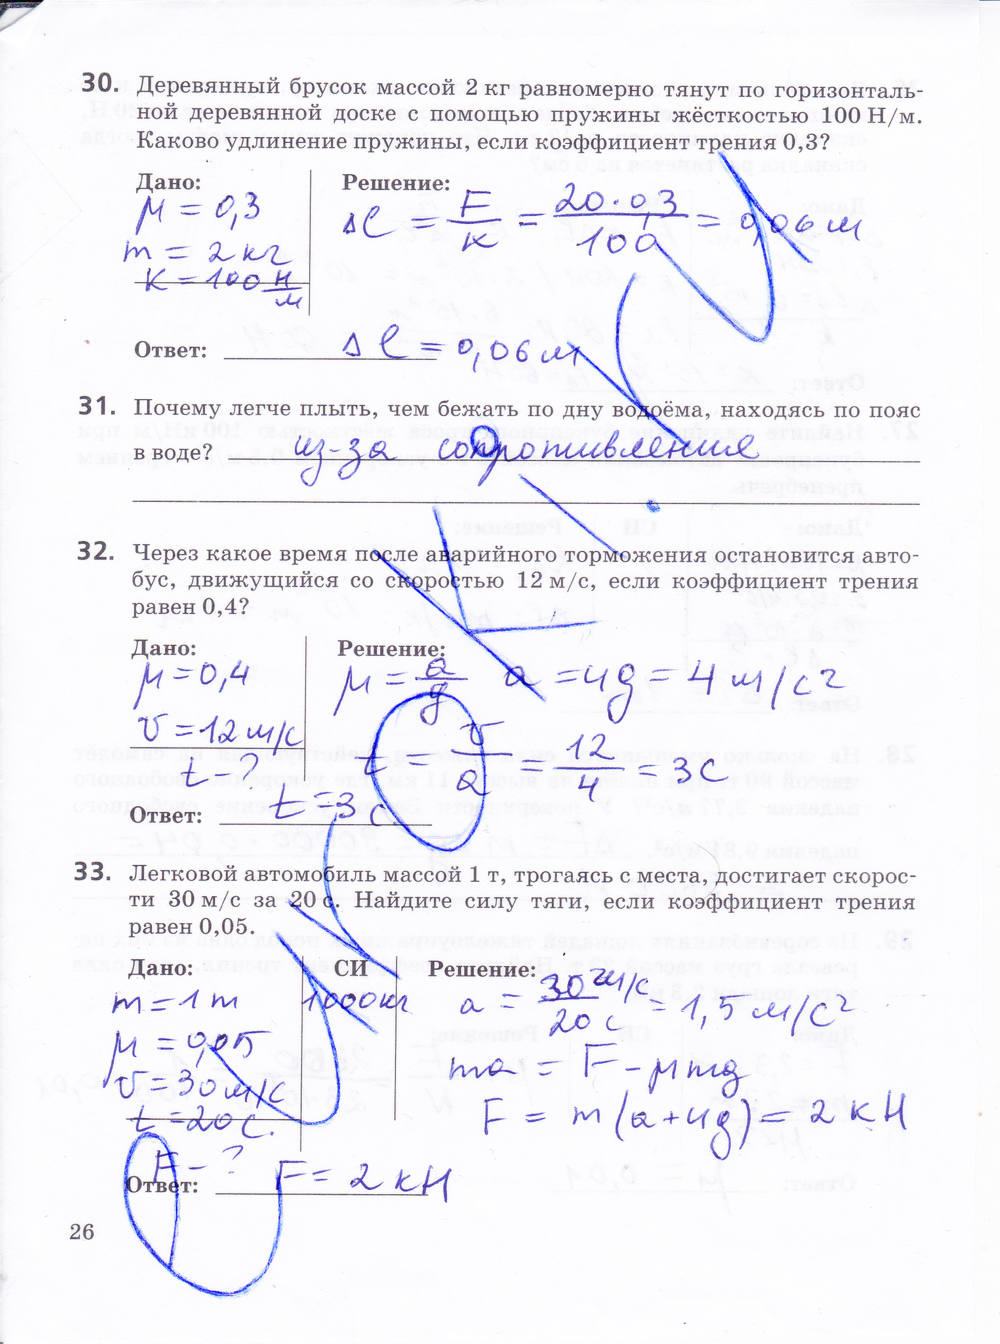 30. Деревянный брусок массой 2 кг равномерно тянут по горизонталь-
ной деревянной доске с помощью пружины жёсткостью 100 Н/м.
Каково удлинение пружины, если коэффициент трения 0,3?
Дано:
μ = 0,3
m = 2 кг
K = 100 н/м
Решение:
Δl = F/K = 20·0,3/100 = 0,06 м
Ответ: Δl = 0,06 м
31. Почему легче плыть, чем бежать по дну водоёма, находясь по пояс
в воде? из-за сопротивления
32. Через какое время после аварийного торможения остановится авто-
бус, движущийся со скоростью 12 м/с, если коэффициент трения
равен 0,4?
Дано:
μ = 0,4
υ = 12 м/с
t - ?
Решение:
μ = a/g a = μg = 4 м/с2
t = υ/a = 12/4 = 3с
Ответ: t = 3с
33. Легковой автомобиль массой 1 т, трогаясь с места, достигает скорос-
ти 30 м/с за 20 с. Найдите силу тяги, если коэффициент трения
равен 0,05.
Дано:
m = 1 т
μ = 0,05
υ = 30 м/с
t = 20с.
F - ?
СИ
1000кг
Решение:
a = 30 м/с/20 с = 1,5 м/с2
ma = F - μmg
F = m(a+μg) = 2 кН
Ответ: F = 2 кН
26